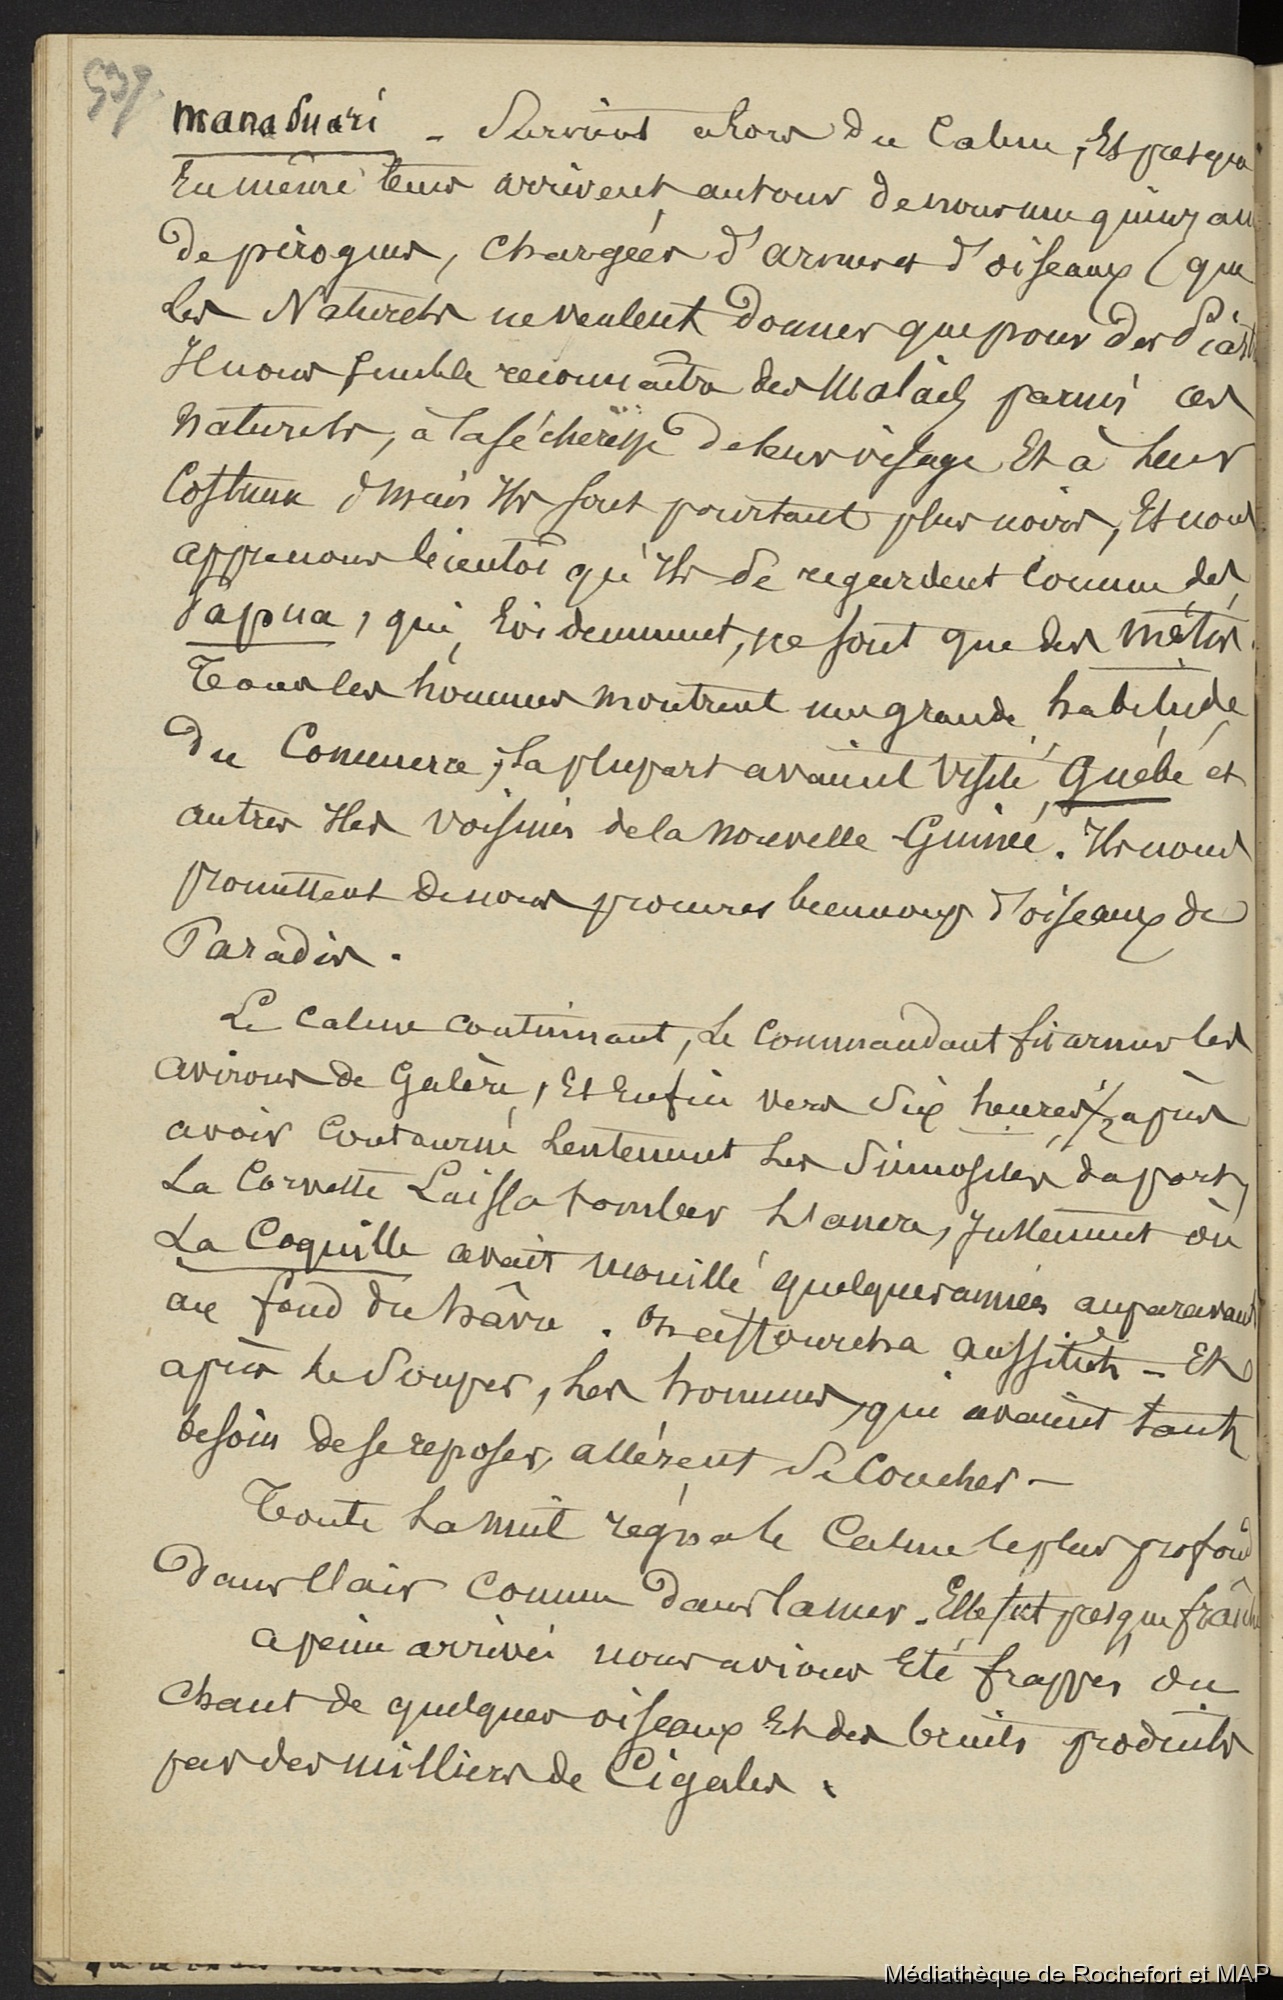 539.
Manasuari - Survint alors du Calme, Et presque
En même tems arrivent, autour de nous une quinzaine
de pirogues, chargées d'armes et d'oiseaux (que
les Naturels ne veulent donner que pour des Piast
Il nous semble reconnaitre des Malais parmi ces
naturels, à la sécheresse de leur visage Et à leur
Costume, mais Ils sont pourtant plus noirs, Et nous
apprenons bientôt qu'Ils Se regardent Comme des
Papua, qui, Evidemment, ne sont que des métis.
Tous les hommes montrent une grande habitude
du Commerce; la plupart avaient visité Guébé et
autres Iles voisines de la Nouvelle-Guinée. Ils nous
promettent de nous procurer beaucoup d'oiseaux de
Paradis.
Le Calme continuant, Le Commandant fit armer les
avirons de Galère, Et Enfin vers Six heures 1/2 après
avoir Contourné Lentement Les Sinuosités du port,
La Corvette Laissa tomber L'ancre, Justement où
La Coquille avait mouillé quelques années auparavant
au fond du hâvre. On affourcha aussitôt - Et
après le Souper, Les hommes, qui avaient tant
besoin de se reposer, allèrent Se Coucher -
Toute La nuit régna le Calme le plus profond
dans l'air Comme dans la mer. Elle fut presque fraîche
a peine arrivés nous avions Eté frappés du
Chant de quelques oiseaux Et des bruits produits
par des milliers de Cigales.
Médiathèque de Rochefort et MAP